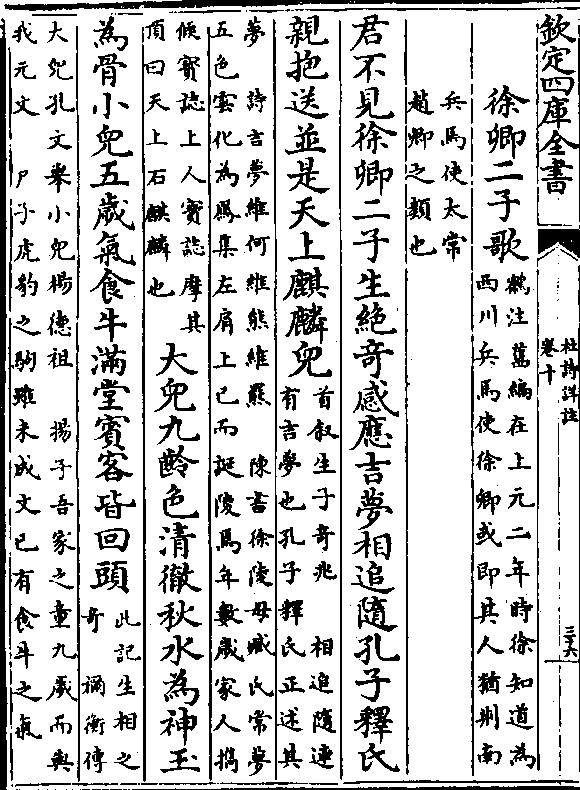 欽定四庫全書
杜詩詳註
卷十
三十六
徐卿二子歌
鶴注舊編在上元二年時徐知道為
西川兵馬使徐卿或即其人猶荆南
兵馬使太常
趙卿之類也
君不見徐卿二子生絶奇感應吉夢相追隨孔子釋氏
親抱送並是天上麒麟兒
首叙生子奇兆　相追隨連
有吉夢也孔子釋氏正述其
夢　詩吉夢維何維熊維羆　陳書徐陵母臧氏常夢
五色雲化為鳳集左肩上已而誕陵焉年數歲家人攜
候寳誌上人寳誌摩其
頂曰天上石麒麟也
大兒九齡色清徹秋水為神玉
為骨小兒五歲氣食牛滿堂賓客皆回頭
此記生相之
奇　禰衡傳
大兒孔文舉小兒楊德祖　揚子吾家之童九歲而與
我元文　尸子虎豹之駒雖未成文已有食牛之氣